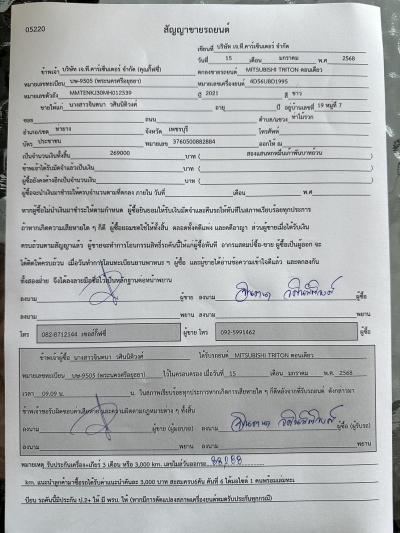 05220
สัญญาขายรถยนต์
เขียนที่ บริษัท เจ.ที.คาร์เซ็นเตอร์ จำกัด
วันที่ 15 เดือน มกราคม พ.ศ 2568
ข้าพเจ้า บริษัท เจ.ที.คาร์เซ็นเตอร์ จำกัด ตกลงขายรถยนต์ MITSUBISHI TRITON ตอนเดียว
หมายเลขทะเบียน บษ-9505 (พระนครศรีอยุธยา) หมายเลขเครื่องยนต์ 4D56UBD1995
หมายเลขตัวถัง MMTENKJ30MH012539 ปี 2021 สี ขาว
ขายให้แก่ นางสาวจินตนา วศินนิติวงศ์ อายุ ปี อยู่บ้านเลขที่ 19 หมู่ที่ 7
ซอย ถนน ตำบล/แขวง ท่าไม้รวก
อำเภอ/เขต ท่ายาง จังหวัด เพชรบุรี โทรศัพท์
บัตร ประชาชน หมายเลข 3760500882884 ออกให้ ณ
เป็นจำนวนเงินทั้งสิ้น 269000 บาท ( สองแสนหกหมื่นเก้าพันบาทถ้วน )
ข้าพเจ้าได้รับมัดจำแล้วเป็นเงิน บาท ( )
ผู้ซื้อยังคงค้างอีกเป็นจำนวนเงิน บาท ( )
ผู้ซื้อจะนำเงินมาชำระให้ครบจำนวนตามที่ตกลง ภายใน วันที่ เดือน พ.ศ
หากผู้ซื้อไม่นำเงินมาชำระให้ตามกำหนด ผู้ซื้อยินยอมให้ริบเงินมัดจำและคืนรถให้ทันทีในสภาพเรียบร้อยทุกประการ
ถ้าหากเกิดความเสียหายใด ๆ ก็ดี ผู้ซื้อยอมชดใช้ให้ทั้งสิ้น ตลอดทั้งคดีแพ่ง และคดีอาญา ส่วนผู้ขายเมื่อได้รับเงิน
ครบถ้วนตามสัญญาแล้ว ผู้ขายจะทำการโอนกรรมสิทธิ์รถคันนี้ให้แก่ผู้ซื้อทันที
ทั้งสองฝ่าย จึงได้ลงลายมือชื่อไว้เป็นหลักฐานต่อหน้าพยาน
ลงนาม ผู้ขาย ลงนาม ผู้ซื้อ
ลงนาม พยาน ลงนาม พยาน
โทร 082-8712544 ผู้ขาย โทร 092-5991462 ผู้ซื้อ
ข้าพเจ้าผู้ซื้อ นางสาวจินตนา วศินนิติวงศ์ ได้รับรถยนต์ MITSUBISHI TRITON ตอนเดียว
หมายเลขทะเบียน บษ-9505 (พระนครศรีอยุธยา) ไว้ในครอบครอง เมื่อวันที่ 15 เดือน มกราคม พ.ศ. 2568
เวลา 09.09 น. น. ในสภาพเรียบร้อยทุกประการหากเกิดการเสียหายใด ๆ ก็ดีหลังจากที่รับรถยนต์ ดังกล่าวมา
ข้าพเจ้าขอรับผิดชอบค่าเสียหายและความผิดตามกฎหมายต่าง ๆ ทั้งสิ้น
ลงนาม ผู้ขาย (ผู้มอบรถ) ลงนาม ผู้ซื้อ (ผู้รับรถ)
ลงนาม พยาน ลงนาม พยาน
หมายเหตุ รับประกันเครื่อง+เกียร์ 3 เดือน หรือ 3,000 km. เลขไมล์วันออกรถ 88288
km. แนะนำลูกค้ามาซื้อรถได้รับค่าแนะนำคันละ 3,000 บาท สะสมครบ 6คัน คันที่ 6 ได้มอไซค์ 1 คันพร้อมเล่มทะเ
บียน รถคันนี้มีประกัน ป.2+ ให้ มี พรบ. ให้ (หากมีการดัดแปลงสภาพเครื่องยนต์หมดรับประกันทุกกรณี)